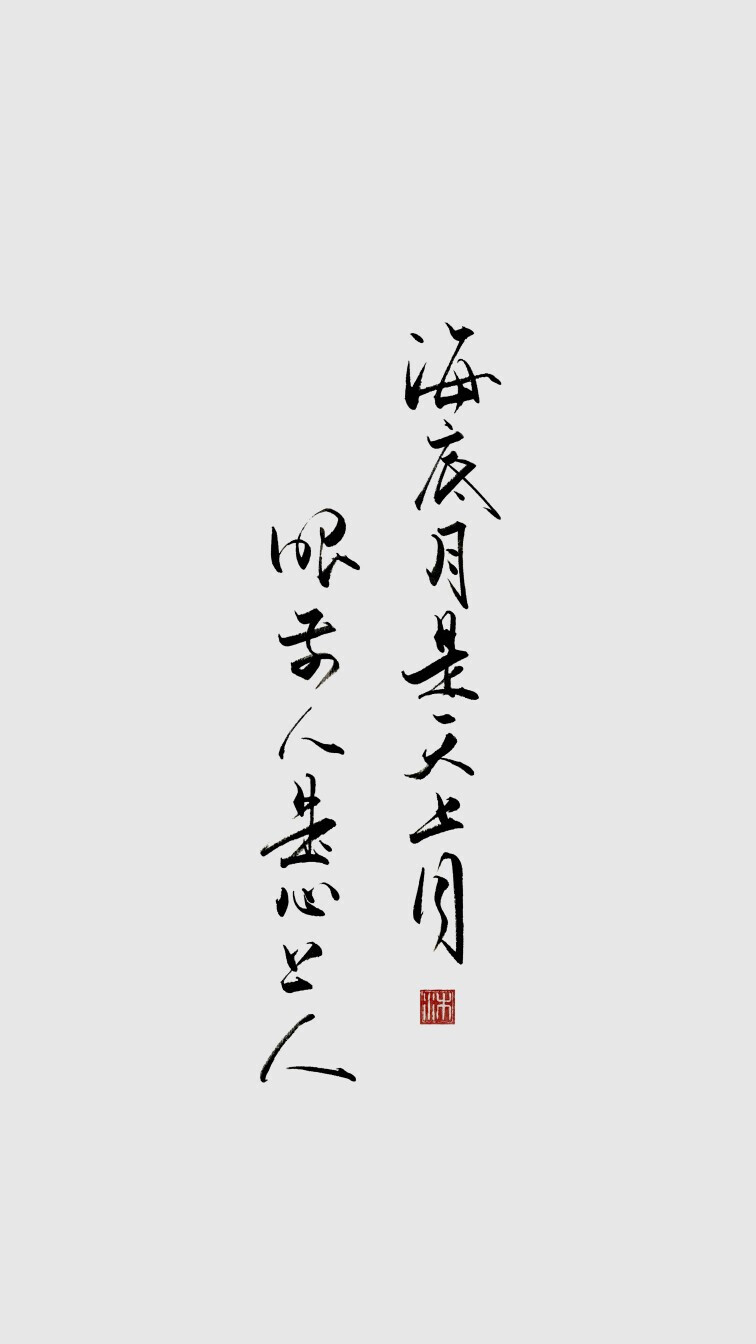 海底月是天上月
眼前人是心上人